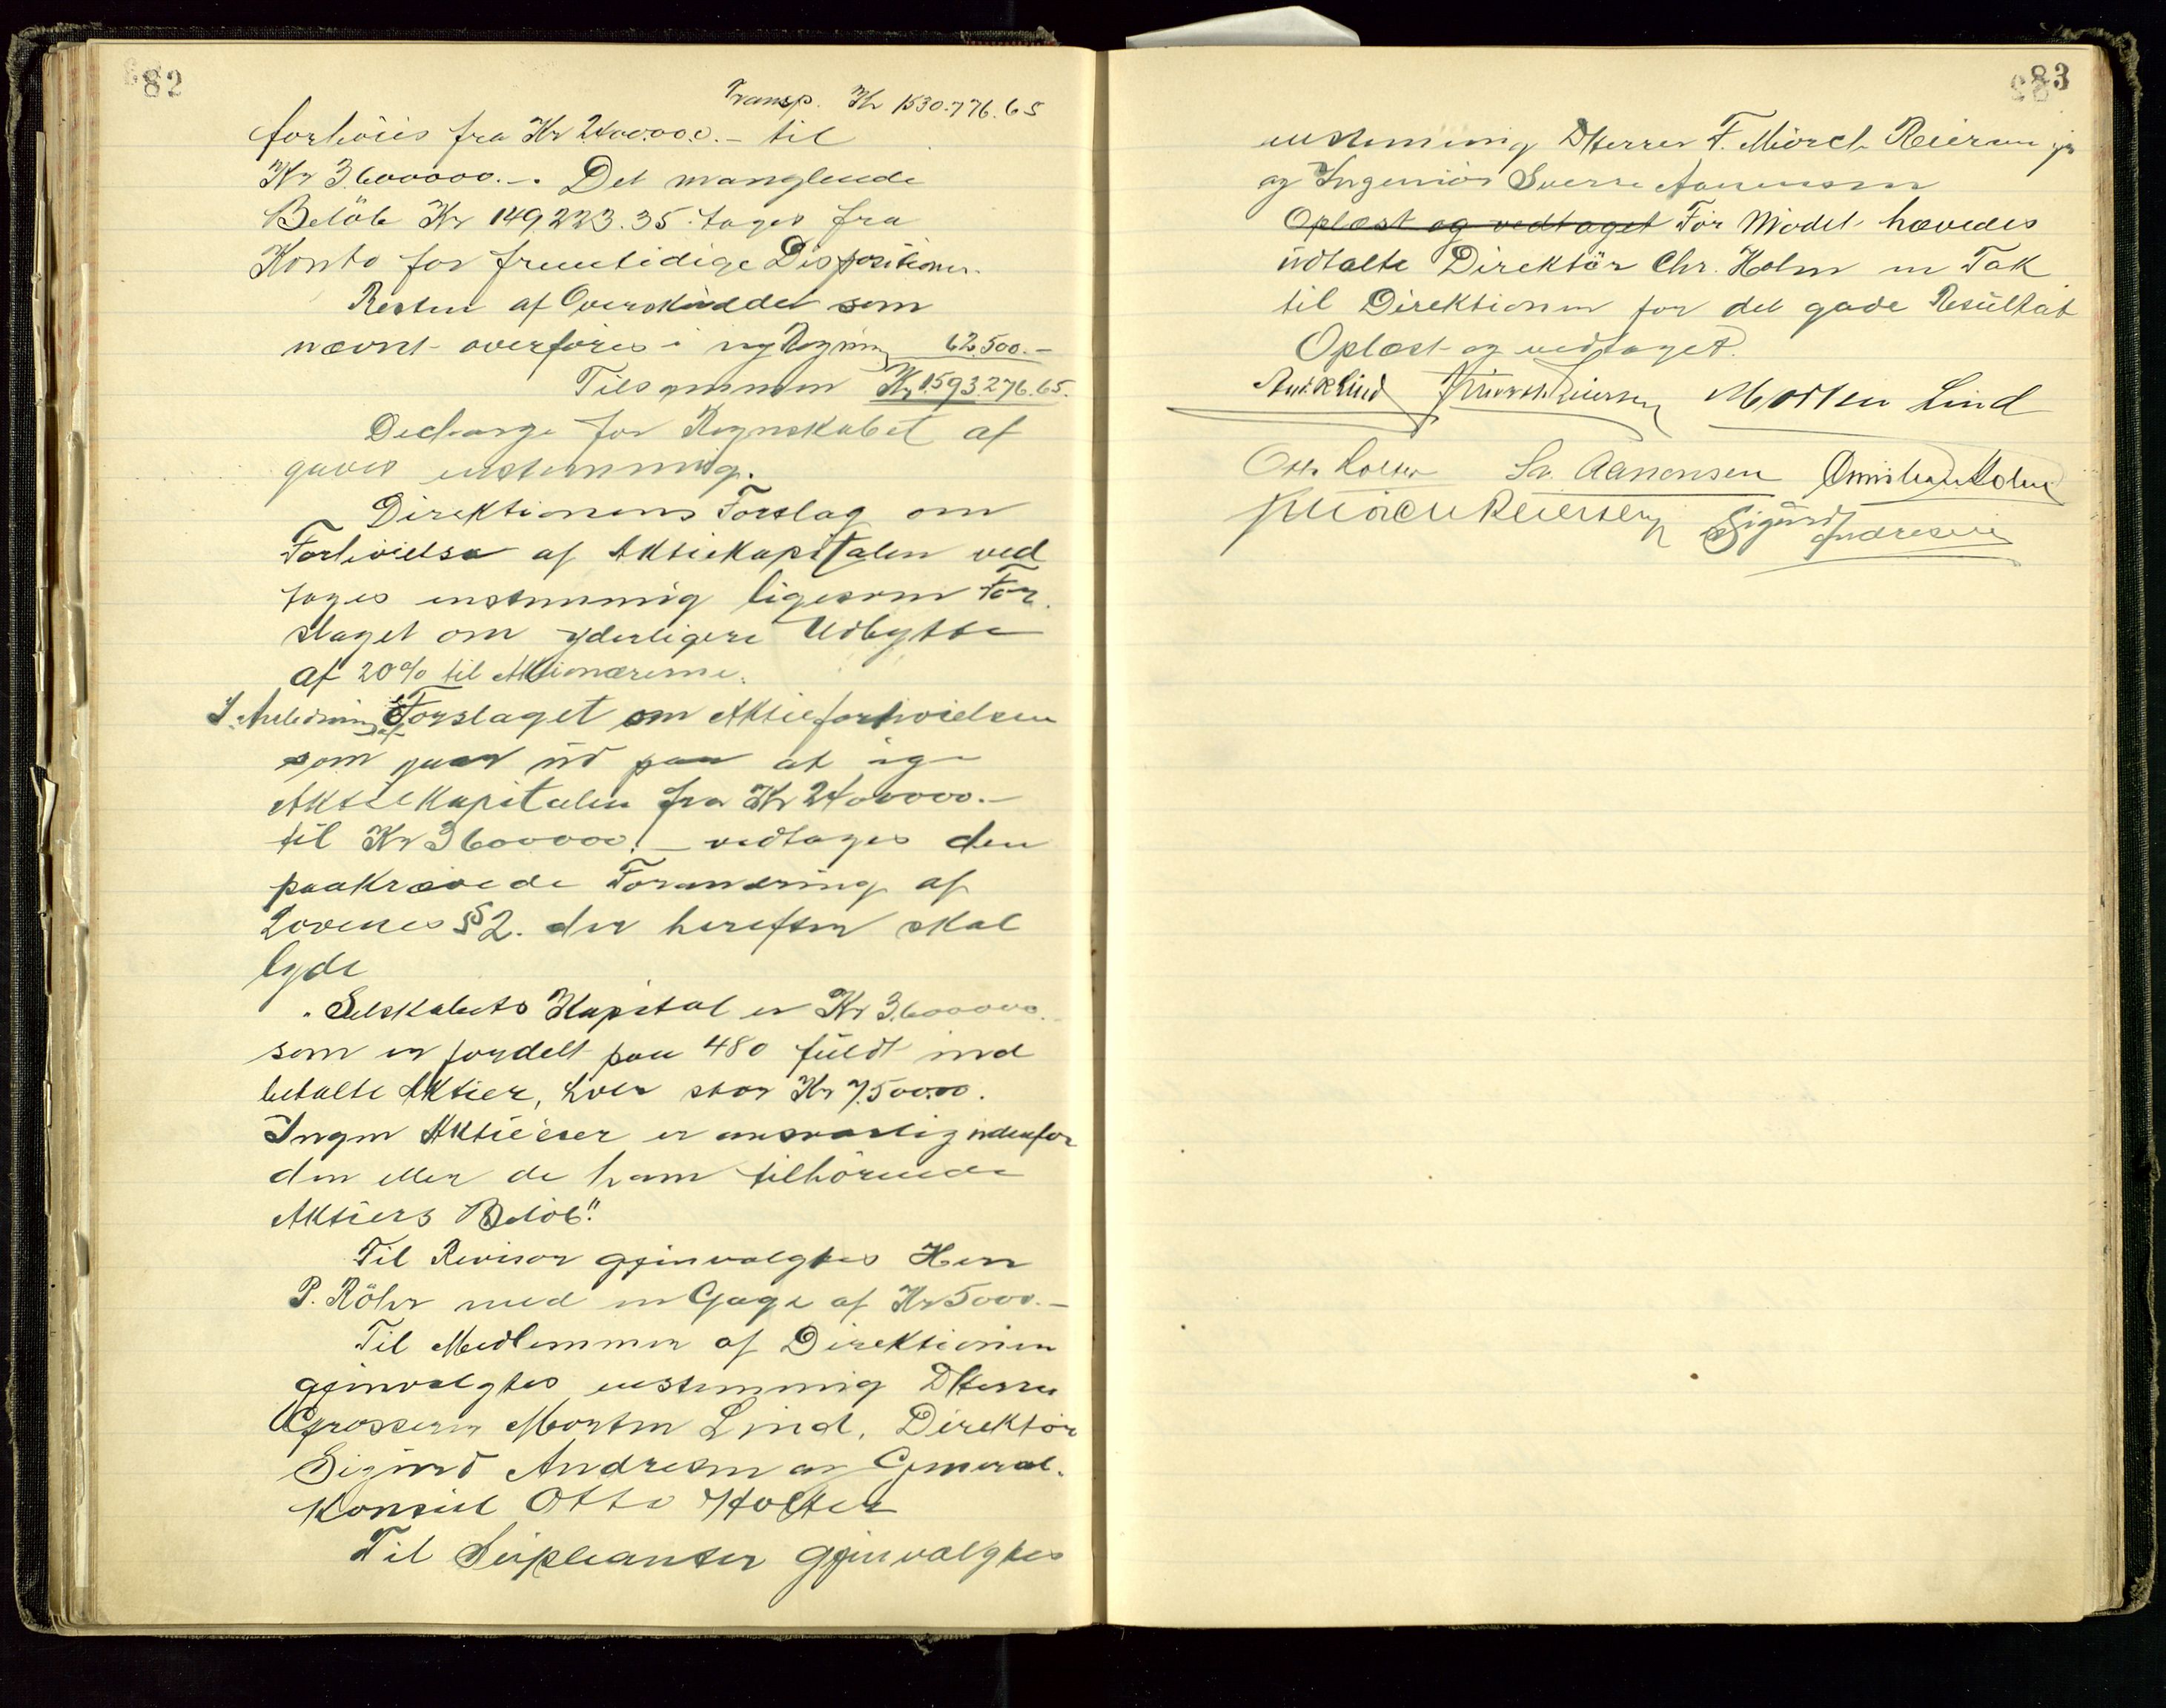 82
Transp. Kr 1530.776.65
forhöies fra Kr 2400000.- til
Kr 3.600000.-. Det manglende
Belöb Kr 149,223.35 tages fra
Konto for fremtidige Dispositioner.
Resten af Overskuddet som
nævnt overføres i ny Regning 62.500.-
Tilsammen Kr 1.593.276.65.
Decharge for Regnskabet af
gaves enstemmig.
Direktionens Forslag om
Forhöielse af Aktiekapitalen ved
toges enstemmig ligesom For
slaget om yderligere Udbytte
af 20% til Aktionærerne.
I Anledning af Forslaget om Aktieforhöielsen
som gaar ud paa at öge
Aktiekapitalen fra Kr 2400000.-
til Kr 3600000.- vedtages den
paakrævede Forandring af
Lovenes §2. der herefter skal
lyde
"Selskabets Kapital er Kr 3.600000.-
som er fordelt paa 480 fuldt ind
betalte Aktier, hver stor Kr 7.500.00.
Ingen Aktieeier er ansvarlig udenfor
den eller de ham tilhörende
Aktiers Belöb."
Til Revisor gjenvalgtes Herr
P. Röhr med en Gage af Kr 5000.-
Til Medlemmer af Direktionen
gjenvalgtes enstemmig DHerrer
Grosserer Morten Lind, Direktör
Sigurd Andresen og General-
konsul Otto Holter
Til Suppleanter gjenvalgtes
83
enstemmig DHerrer F. Mörch Reiersen jr
og Ingeniör Sverre Aanensen
Oplæst og vedtagetFör Mödet hævedes
udtalte Direktör Chr. Holm en Tak
til Direktionen for det gode Resultat
Oplæst og vedtaget.
Morten Lind
Otto Holter Sv. Aanonsen Christian Holm
F Mörch Reiersen jr Sigurd Andresen